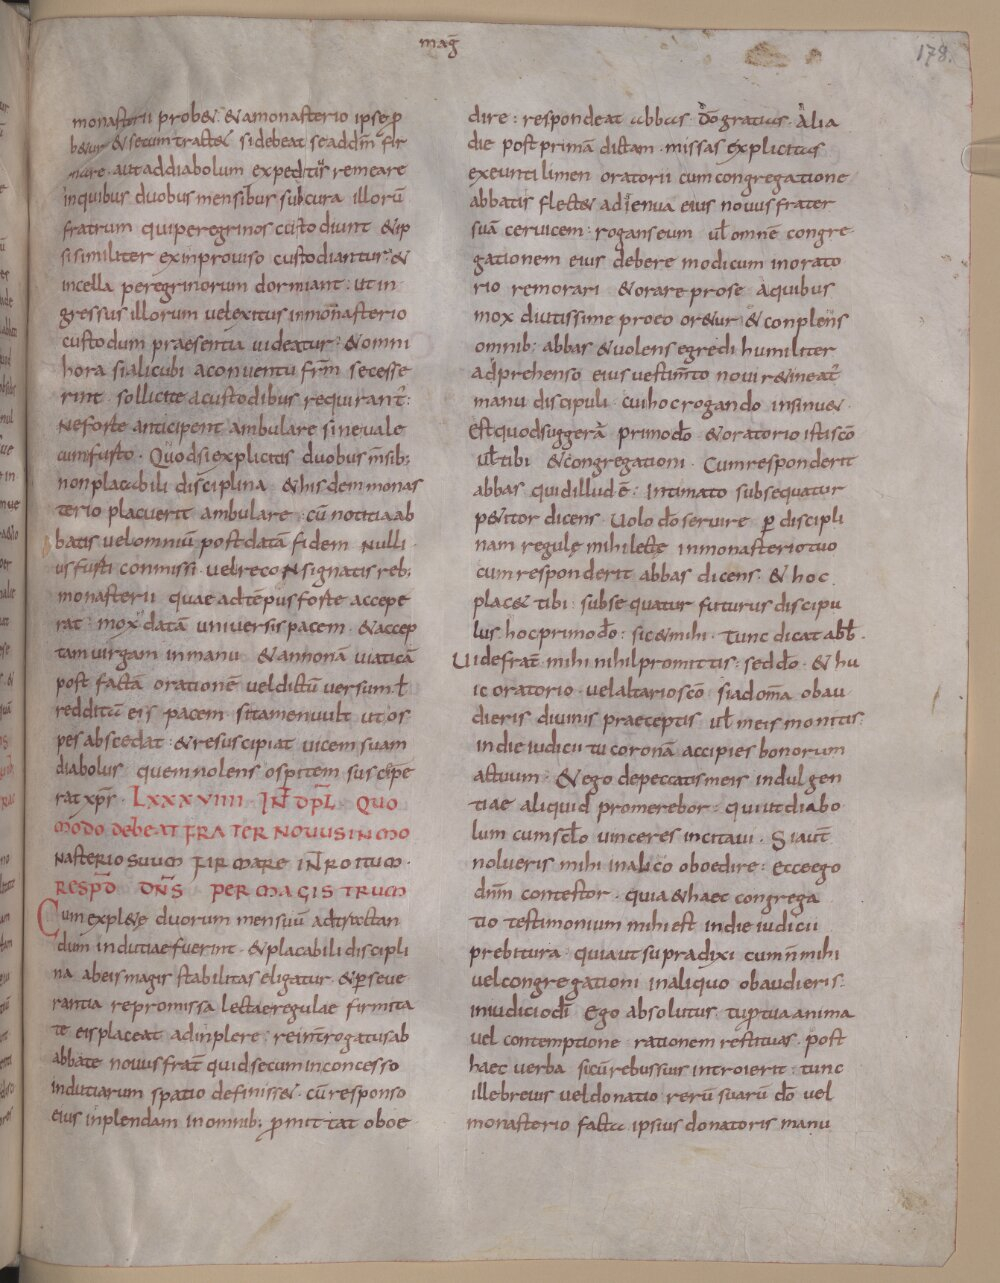 mag̅
178.
monasterii prob&. & amonasterio ipse p̲
b&ur & secum tract&. si debeat se addn̅m fir
mare. aut addiabolum expeditus remeare
inquibus duobus mensibus subcura illorū
fratrum qui peregrinos custodiunt &ip
si similiter exinproviso custodiantur. &
incella peregrinorum dormiant. ut in
gressus illorum vel exitus inmonasterio
custodum praesentia videatur. & omni
hora si alicubi aconventu fr̅m secesse
rint. sollicite acustodibus requirant̅.
Ne forte anticipent ambulare sine vale
cum furto. Quodsi explicitis duobus m̅sib;
non placabili disciplina & hisdem monas
terio placuerit ambulare cū notitia ab
batis vel omniū post datā fidem nulli
us furti conmissi. vel reconsignatis reb;
monasterii quae adtēpus forte accepe
rat. mox datā universis pacem. & accep
tam virgam in manu & annonā viaticā
post factā orationē vel dictū versum ł
redditū eis pacem. si tamen vult ut os
pes abscedat. & resuscipiat vicem suam
diabolus quem nolens ospitem suscipe
rat xp̅s. LXXXVIIII. IN̅ DP̅L QUO
MODO debeAT FRATER NOVUS IN MO
NASTERIO SUUM FIRMARE IN̅ROITUM.
RESPD̅ DN̅S PER MAGISTRUM
Cum expl&e duorum mensuū adtractan
dum indutiae fuerint. & placabili discipli
na abeis magis stabilitas eligatur. & p̲seve
rantia repromissa lectae regulae firmita
te eis placeat adinplere. reint̅rogatus ab
abbate novus frat̅ quid secum inconcesso
indutiarum spatio definiss&. cū responso
eius inplendam in omnib; p̲mittat oboe
dire: respondeat abbas. dō gratias. Alia
die post primā dictam. missas explicitas
exeunti limen oratorii cum congregatione
abbatis flect& adienua eius novus frater
suā cervicem. rogans eum vł omnē congre
gationem eius debere modicum inorato
rio remorari & orare prose. Aquibus
mox diutissime proeo or&ur & conplens
omnib; abbas & volens egredi humiliter
adprehenso eius vestim̅to novi r&ineat̅
manu discipuli. cui hoc rogando insinu&.
Est quod suggerā primo dō & oratorio isti scō
vł tibi & congregationi. Cum responderit
abbas quid illud ē. Intimato subsequatur
p&itor dicens. Volo dō servire p̲ discipli
nam regulę mihi lectę inmonasterio tuo
cum responderit abbas dicens. & hoc
plac& tibi. subsequatur futurus discipu
lus. hoc primo dō: sic & mihi. Tunc dicat abb̅.
Vide frat̅ mihi nihil promittis. sed dō. & hu
ic oratorio. vel altario scō. si adom̅a obau
dieris divinis praeceptis vł meis monitis
in die iudicii tu coronā accipies bonorum
actuum. & ego depeccatis meis indulgen
tiae aliquid promerebor. qui ut diabo
lum cum sc̅lo vinceres incitavi. Si aut̅
nolveris mihi inalico oboedire. Ecce ego
dn̅m contestor. quia & haec congrega
tio testimonium mihi est indie iudicii
prebitura. quia ut supradixi cum n̅ mihi
vel congregationi inaliquo obaudieris.
in iudicio dī ego absolutus. tu p̲ tua anima
vel contemptione rationem restituas. post
haec verba si cū rebus suis introierit. tunc
ille brevis vel donatio rerū suarū dō vel
monasterio facta ipsius donatoris manu